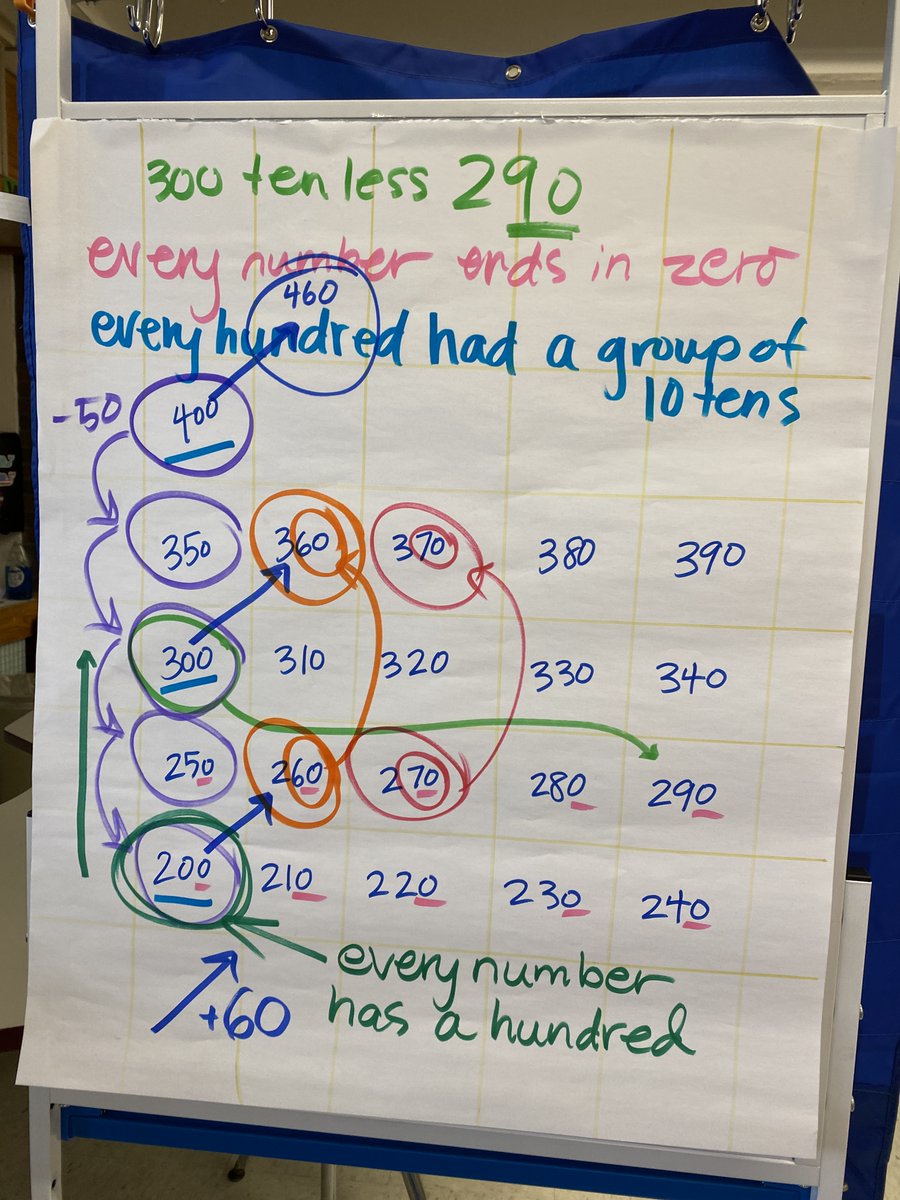 300 ten less 290
every number ends in zero
460
every hundred had a group of
10 tens
-50 400
350 360 370 380 390
300 310 320 330 340
250 260 270 280 290
200 210 220 230 240
every number
+60 has a hundred